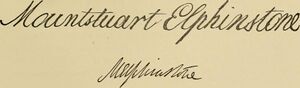 Mountstuart Elphinstone
MElphinstone